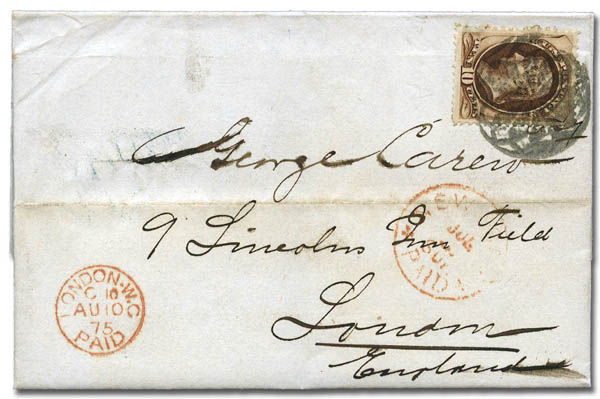 George Carew
9 Lincolns Inn Field
London
England
NEW
JUL
PAID
LONDON·W.C
C 10
AU 10
75
PAID